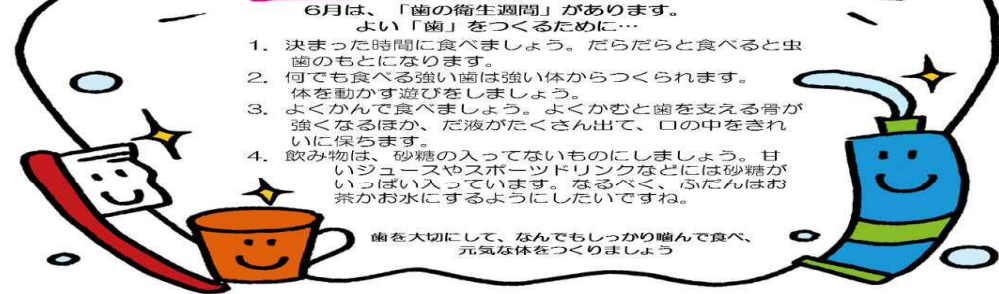 6月は、「歯の衛生週間」があります。
よい「歯」をつくるために…
1．決まった時間に食べましょう。だらだらと食べると虫
歯のもとになります。
2．何でも食べる強い歯は強い体からつくられます。
体を動かす遊びをしましょう。
3．よくかんで食べましょう。よくかむと歯を支える骨が
強くなるほか、だ液がたくさん出て、口の中をきれ
いに保ちます。
4．飲み物は、砂糖の入ってないものにしましょう。甘
いジュースやスポーツドリンクなどには砂糖が
いっぱい入っています。なるべく、ふだんはお
茶かお水にするようにしたいですね。
歯を大切にして、なんでもしっかり噛んで食べ、
元気な体をつくりましょう